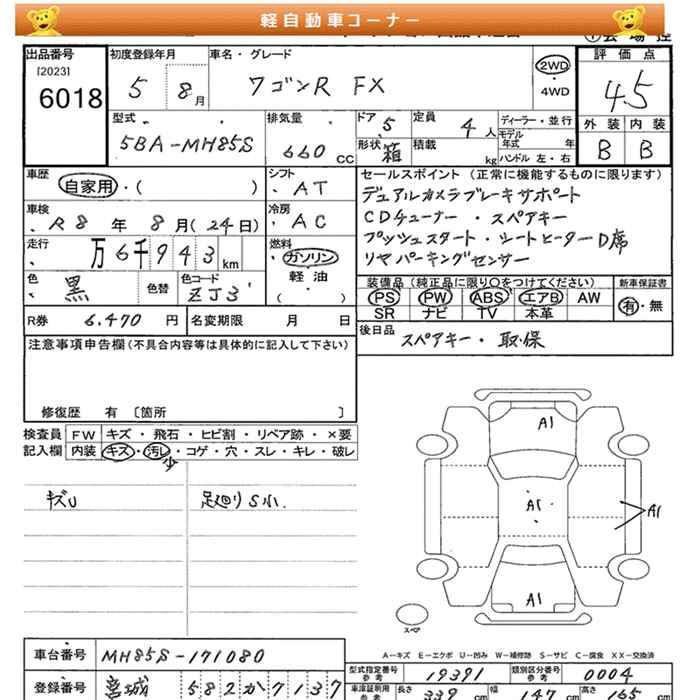 軽自動車コーナー
出品番号
[2023]
6018
初度登録年月
5 8月
車名・グレード
ワゴンR FX
2WD
・
4WD
評価点
4.5
外装 内装
B B
型式
5BA-MH85S
排気量
660 CC
ドア 5
形状 箱
定員 4人
積載 kg
ディーラー・並行
モデル年式 年
ハンドル 左・右
車歴
自家用・( )
シフト
・AT
車検
・R8年8月(24日)
冷房
・AC
走行
・万6千943km
燃料
ガソリン
軽・油
( )
色
・黒
色替
色コード
ZJ3
セールスポイント(正常に機能するものに限ります)
デュアルカメラブレーキサポート
CDチューナー・スペアキー
プッシュスタート・シートヒーターD席
リヤパーキングセンサー
装備品(純正品に限り○をつけてください)
PS PW ABS エアB AW
SR ナビ TV 本革
新車保証書
有・無
R券 6.470 円
名変期限 月 日
後日品
スペアキー・取・保
注意事項申告欄(不具合内容等は具体的に記入して下さい)
修復歴 有 〔箇所 〕
検査員 FW キズ・飛石・ヒビ割・リペア跡・×要
記入欄 内装 キズ・汚レ・コゲ・穴・スレ・キレ・破レ
少
キズU
足廻りS小.
A1
A1
A1
A1
スペア
A-キズ E-エクボ U-凹み W-補修跡 S-サビ C-腐食 XX-交換済
車台番号 MH85S-171080
登録番号 宮城 582か7137
型式指定番号 参考 19391
類別区分番号 参考 0004
車検証明用 参考
長さ 339 cm
幅 147 cm
高さ 165 cm